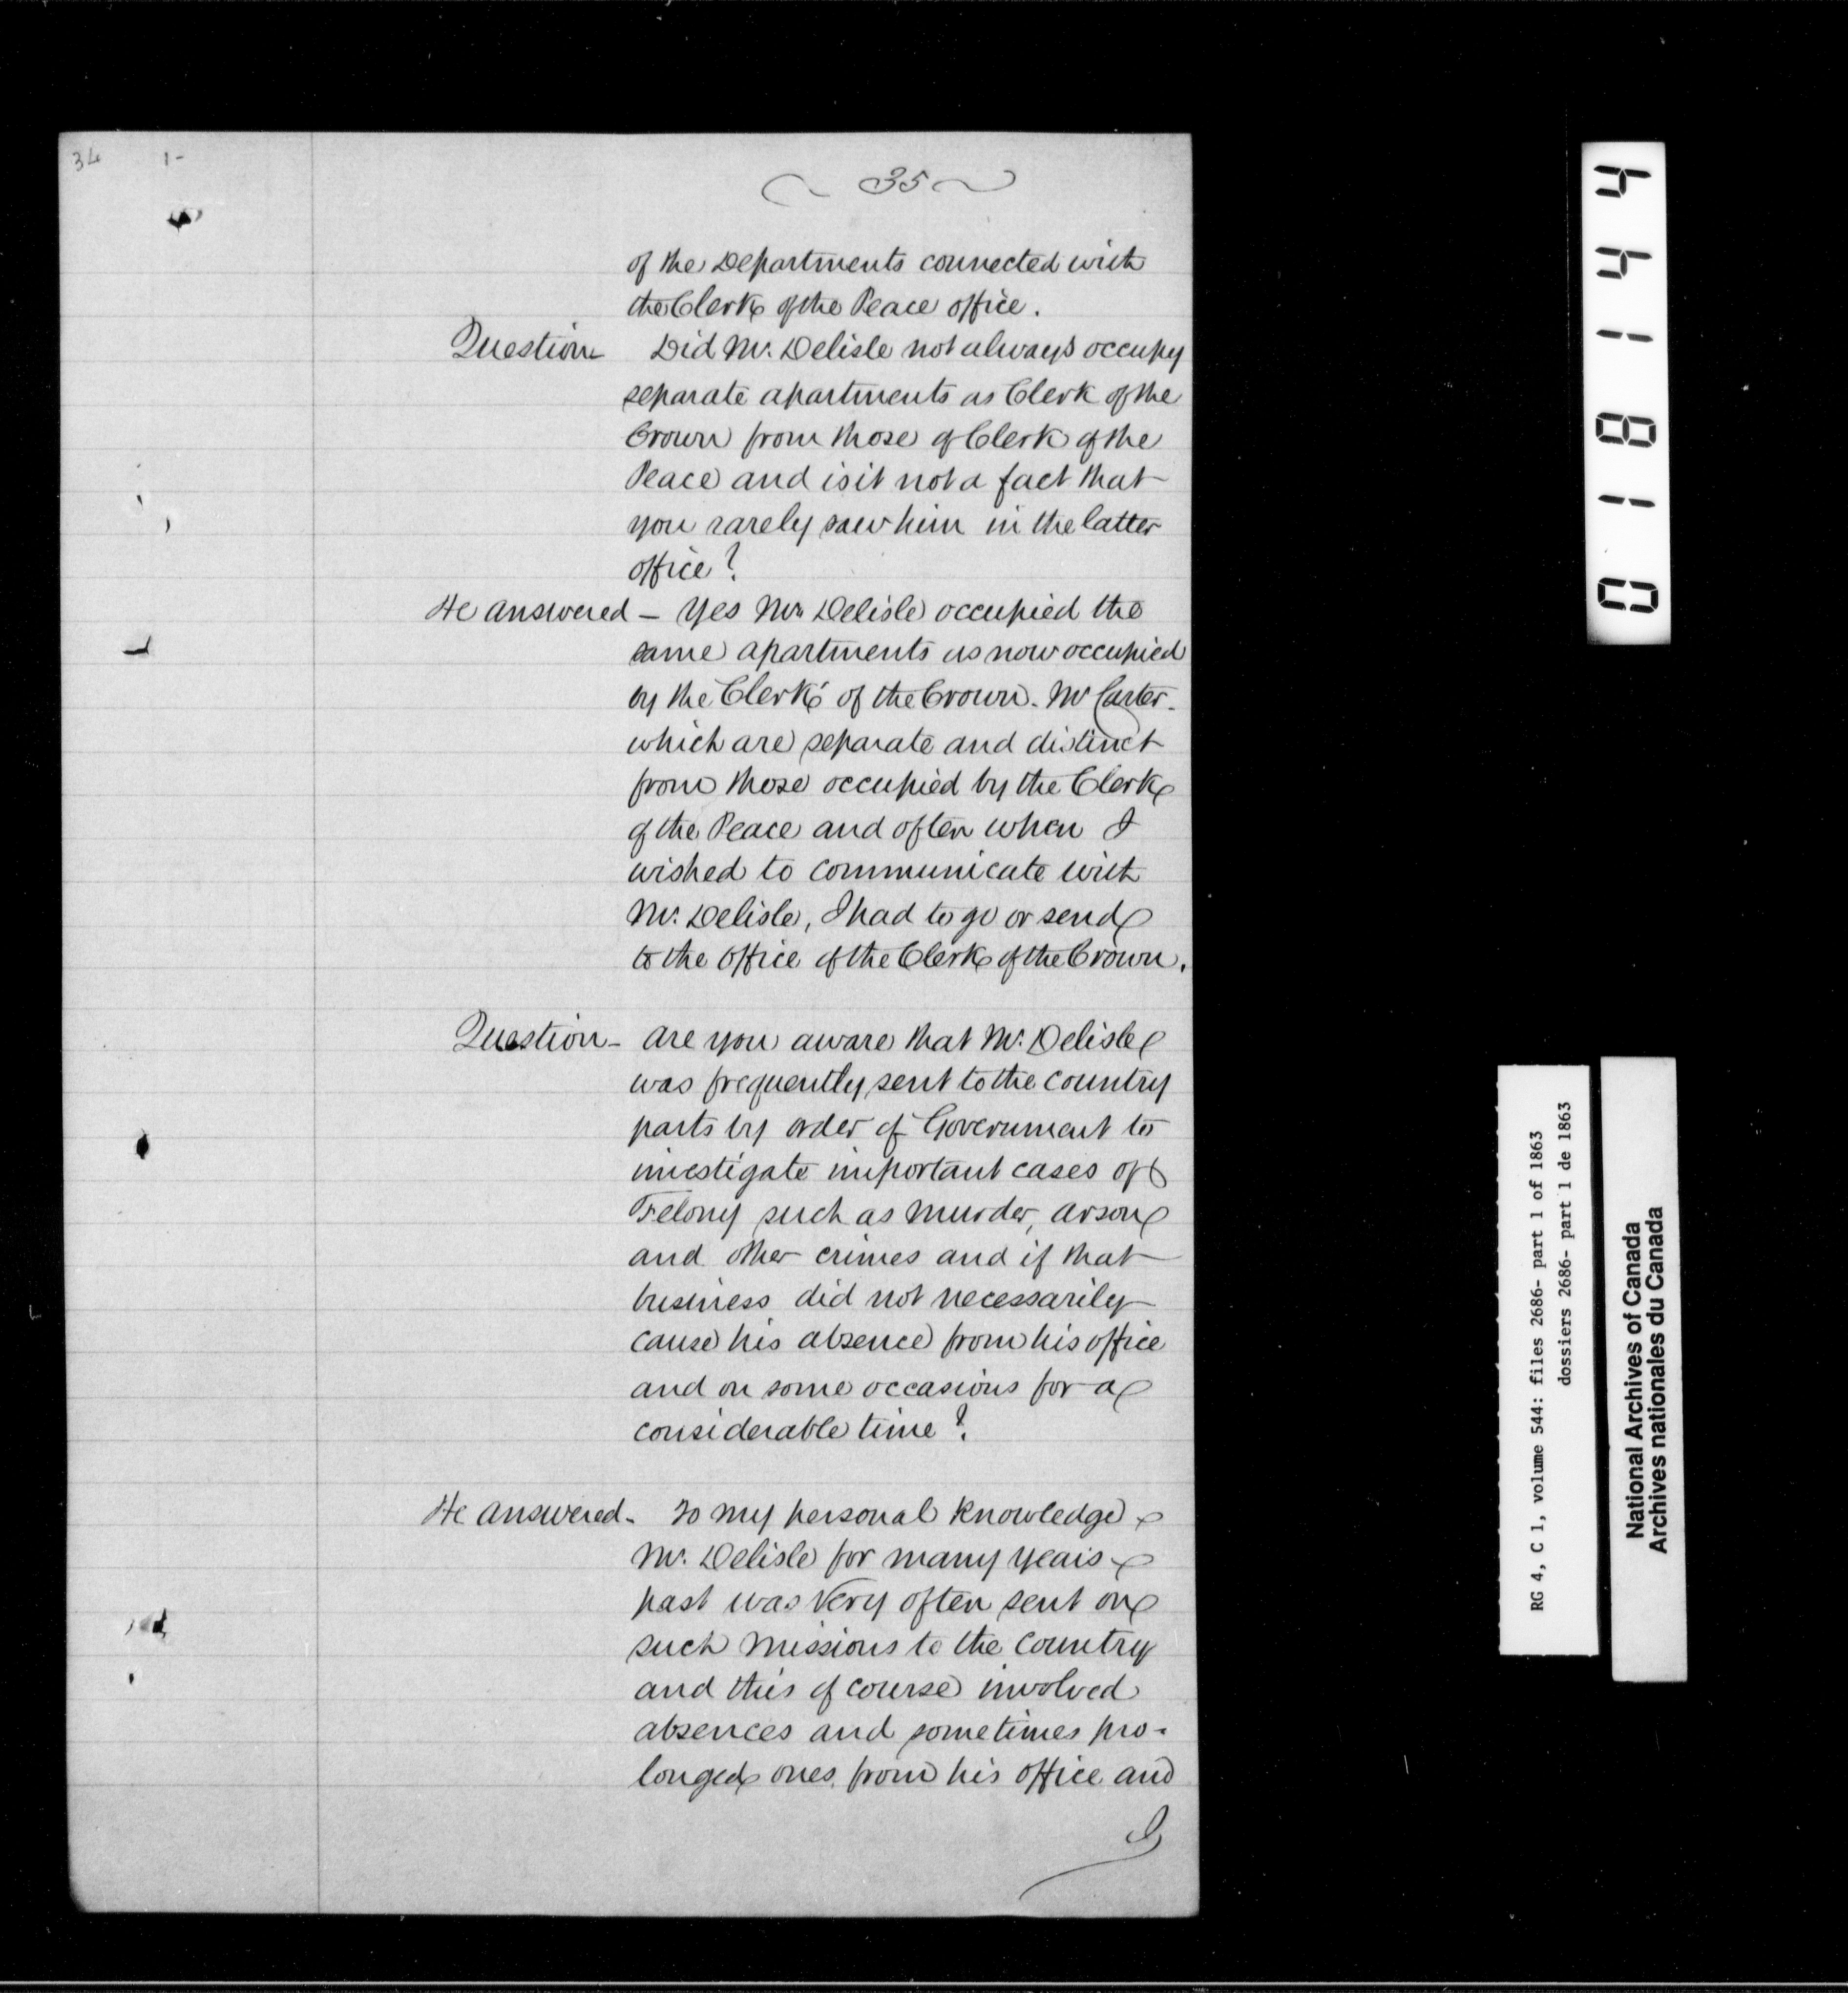 34 1-
~ 35 ~
of the Departments connected with
the Clerk of the Peace office.
Question Did Mr. Delisle not always occupy
separate apartments as Clerk of the
Crown from those of Clerk of the
Peace and is it not a fact that
you rarely saw him in the latter
office?
He answered — Yes Mr. Delisle occupied the
same apartments as now occupied
by the Clerk of the Crown. Mr Carter.
which are separate and distinct
from those occupied by the Clerk
of the Peace and often when I
wished to communicate with
Mr. Delisle, I had to go or send
to the office of the Clerk of the Crown.
Question - are you aware that Mr. Delisle
was frequently sent to the country
parts by order of Government to
investigate important cases of
Felony such as murder, arson
and other crimes and if that
business did not necessarily
cause his absence from his office
and on some occasions for a
considerable time?
He answered - To my personal knowledge
Mr. Delisle for many years
past was very often sent on
such missions to the country
and this of course involved
absences and sometimes pro-
longed ones from his office and
I
018144
RG 4, C 1, volume 544: files 2686- part 1 of 1863
dossiers 2686- part 1 de 1863
National Archives of Canada
Archives nationales du Canada